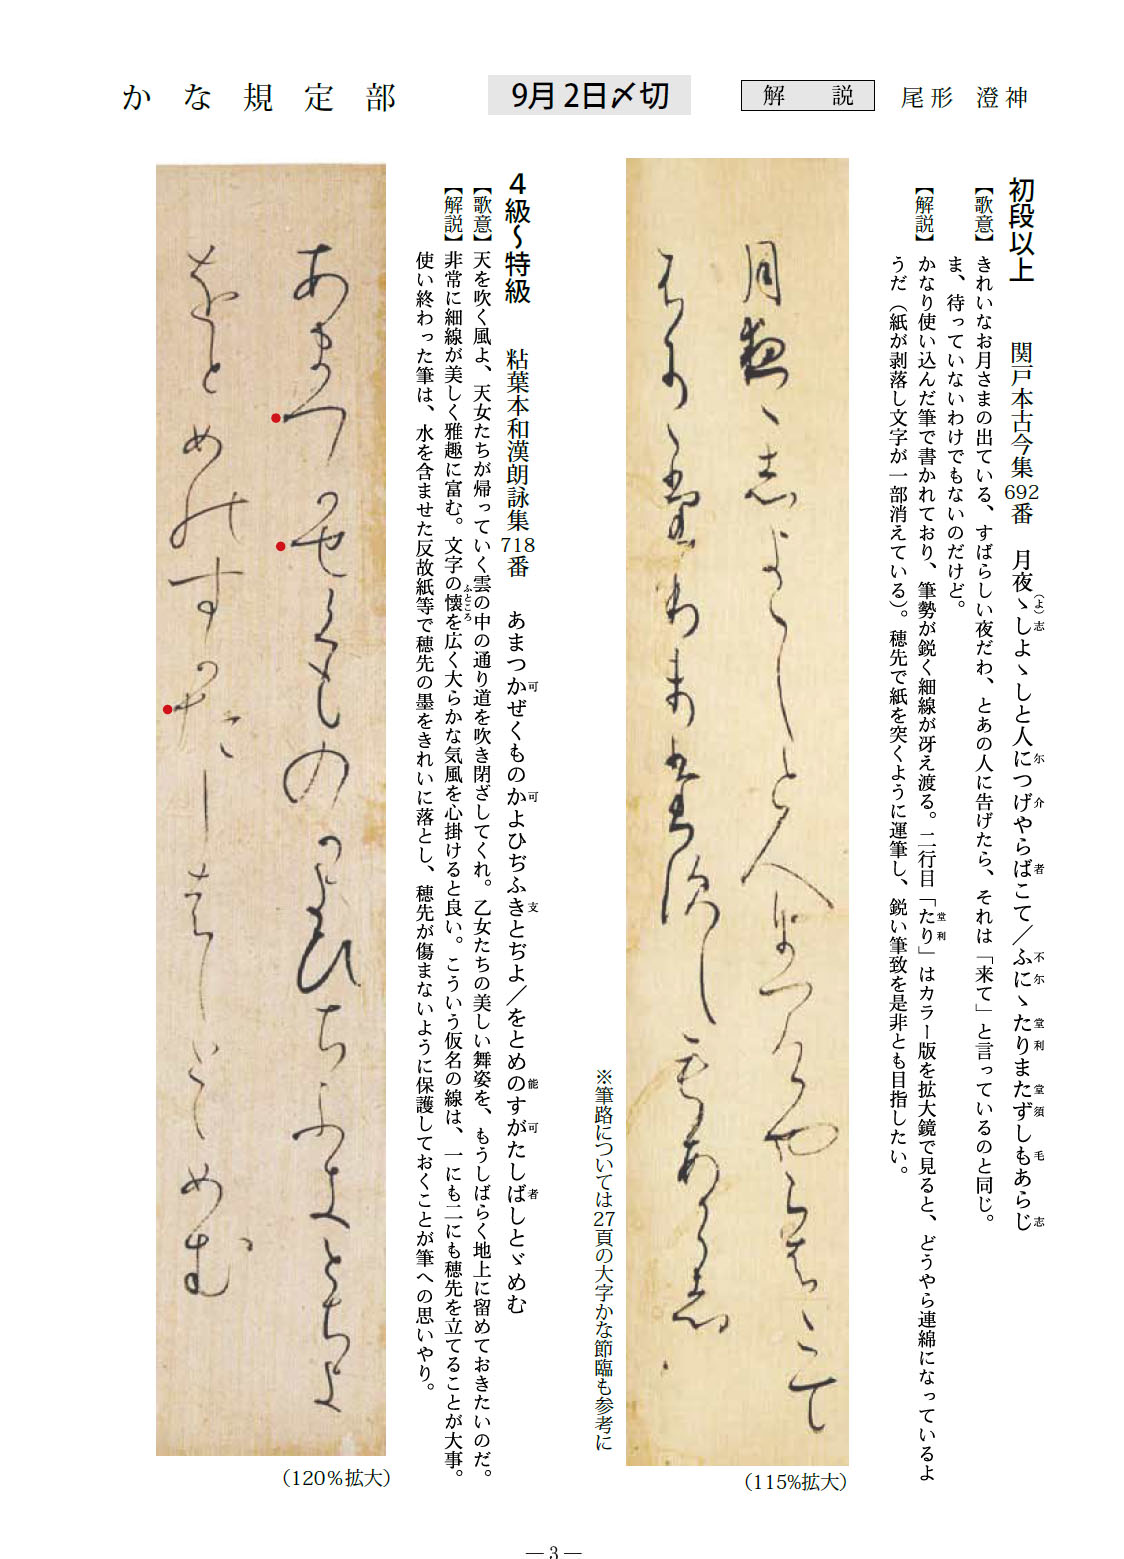 かな規定部
9月2日〆切
解説
尾形 澄神
初段以上 関戸本古今集692番 月夜ゝしよゝしと人につげやらばこて／ふにゝたりまたずしもあらじ
（よ）志 尓 介 者 不尓 堂利 堂須 毛 志
【歌意】きれいなお月さまの出ている、すばらしい夜だわ、とあの人に告げたら、それは「来て」と言っているのと同じ。
ま、待っていないわけでもないのだけど。
【解説】かなり使い込んだ筆で書かれており、筆勢が鋭く細線が冴え渡る。二行目「たり」はカラー版を拡大鏡で見ると、どうやら連綿になっているよ
堂利
うだ（紙が剥落し文字が一部消えている）。穂先で紙を突くように運筆し、鋭い筆致を是非とも目指したい。
月夜ゝ志よゝしと人尓つ介やら者こて
不尓ゝ堂利ま堂須し毛あら志
（115%拡大）
※筆路については27頁の大字かな節臨も参考に
4級～特級 粘葉本和漢朗詠集718番 あまつかぜくものかよひぢふきとぢよ／をとめのすがたしばしとゞめむ
可 可 支 能 可 者
【歌意】天を吹く風よ、天女たちが帰っていく雲の中の通り道を吹き閉ざしてくれ。乙女たちの美しい舞姿を、もうしばらく地上に留めておきたいのだ。
【解説】非常に細線が美しく雅趣に富む。文字の懐を広く大らかな気風を心掛けると良い。こういう仮名の線は、一にも二にも穂先を立てることが大事。
ふところ
使い終わった筆は、水を含ませた反故紙等で穂先の墨をきれいに落とし、穂先が傷まないように保護しておくことが筆への思いやり。
あまつ可せくもの可よひちふ支とちよ
をとめ能す可たし者しとゝめむ
（120%拡大）
― 3 ―